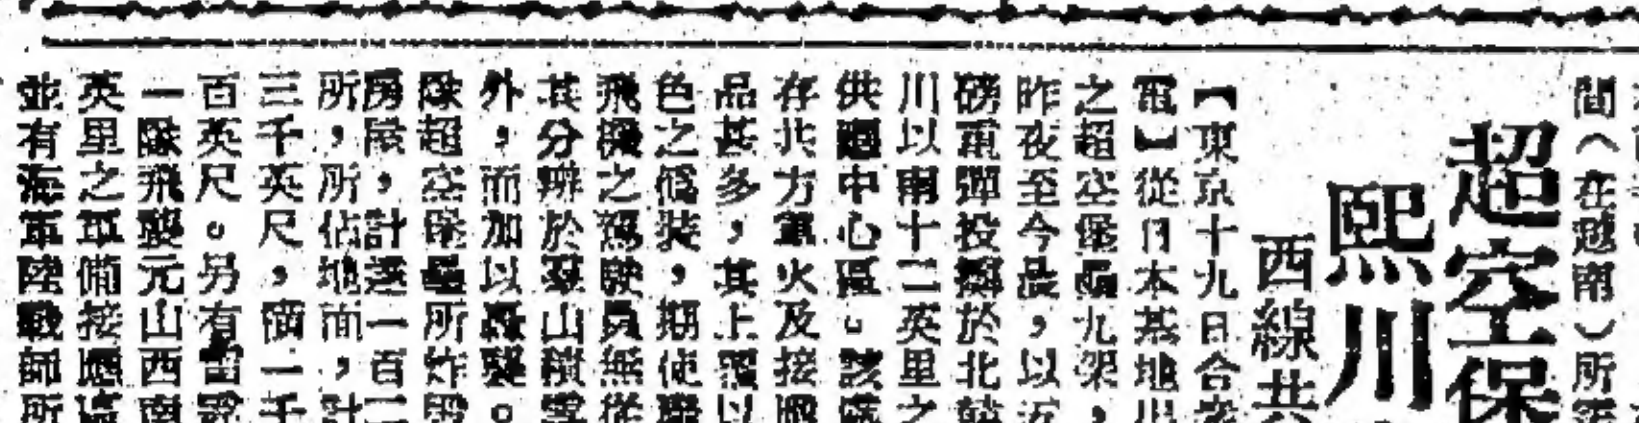 間（在越南）所
超空保
熙川
西線共
【東京十九日合衆
電】從日本基地出
之超空堡壘九架，
昨夜至今晨，以近
磅重彈投擲於北韓
川以南十二英里之
供應中心區。該區
存共方軍火及接應
品甚多，其上蓋以
色之偽裝，期使聯
飛機之駕駛員無從
其分辨於羣山積雪
外，而加以轟襲。
隊超空堡壘所炸毀
房屋，計達一百二
所，所佔地面，計
三千英尺，濶一千
百英尺。另有雷霆
一隊飛襲元山西南
英里之軍備接應區
並有海軍陸戰師所